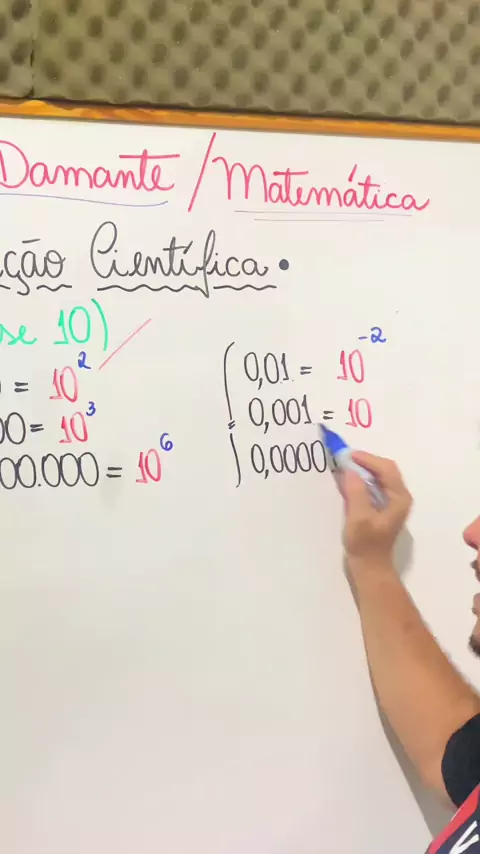 Damante / Matemática
ção Científica.
se 10)
0 = 10²
00 = 10³
00.000 = 10⁶
0,01 = 10⁻²
0,001 = 10
0,0000